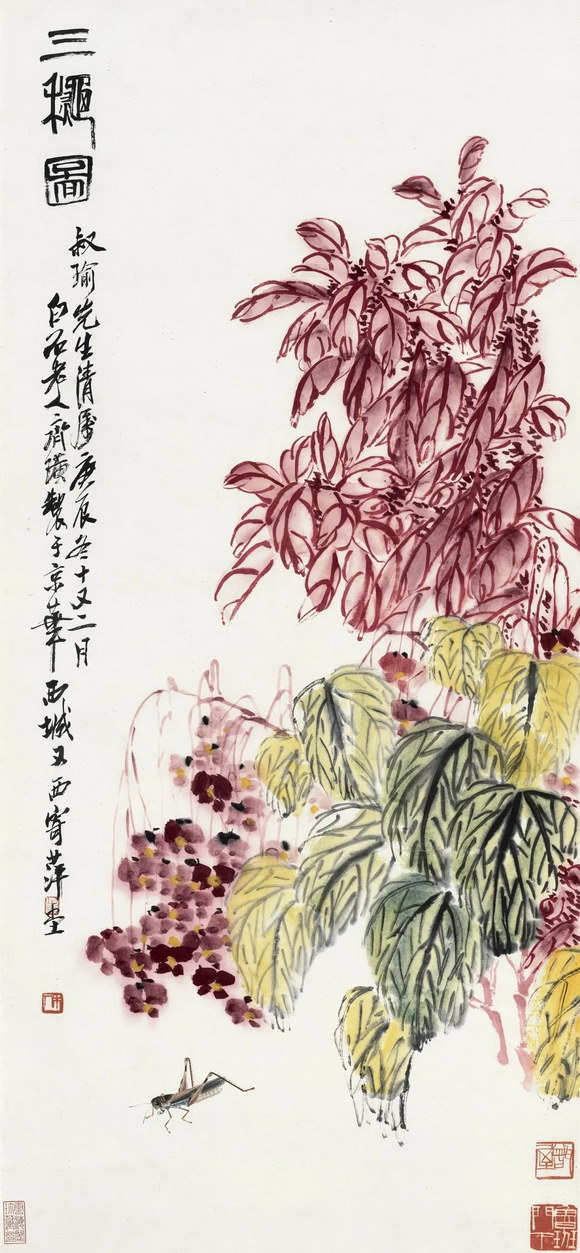 三龝圖
叔瑜先生清属庚辰冬十又二月
白石老人齊璜製于京華西城又西寄萍堂
魯班門下